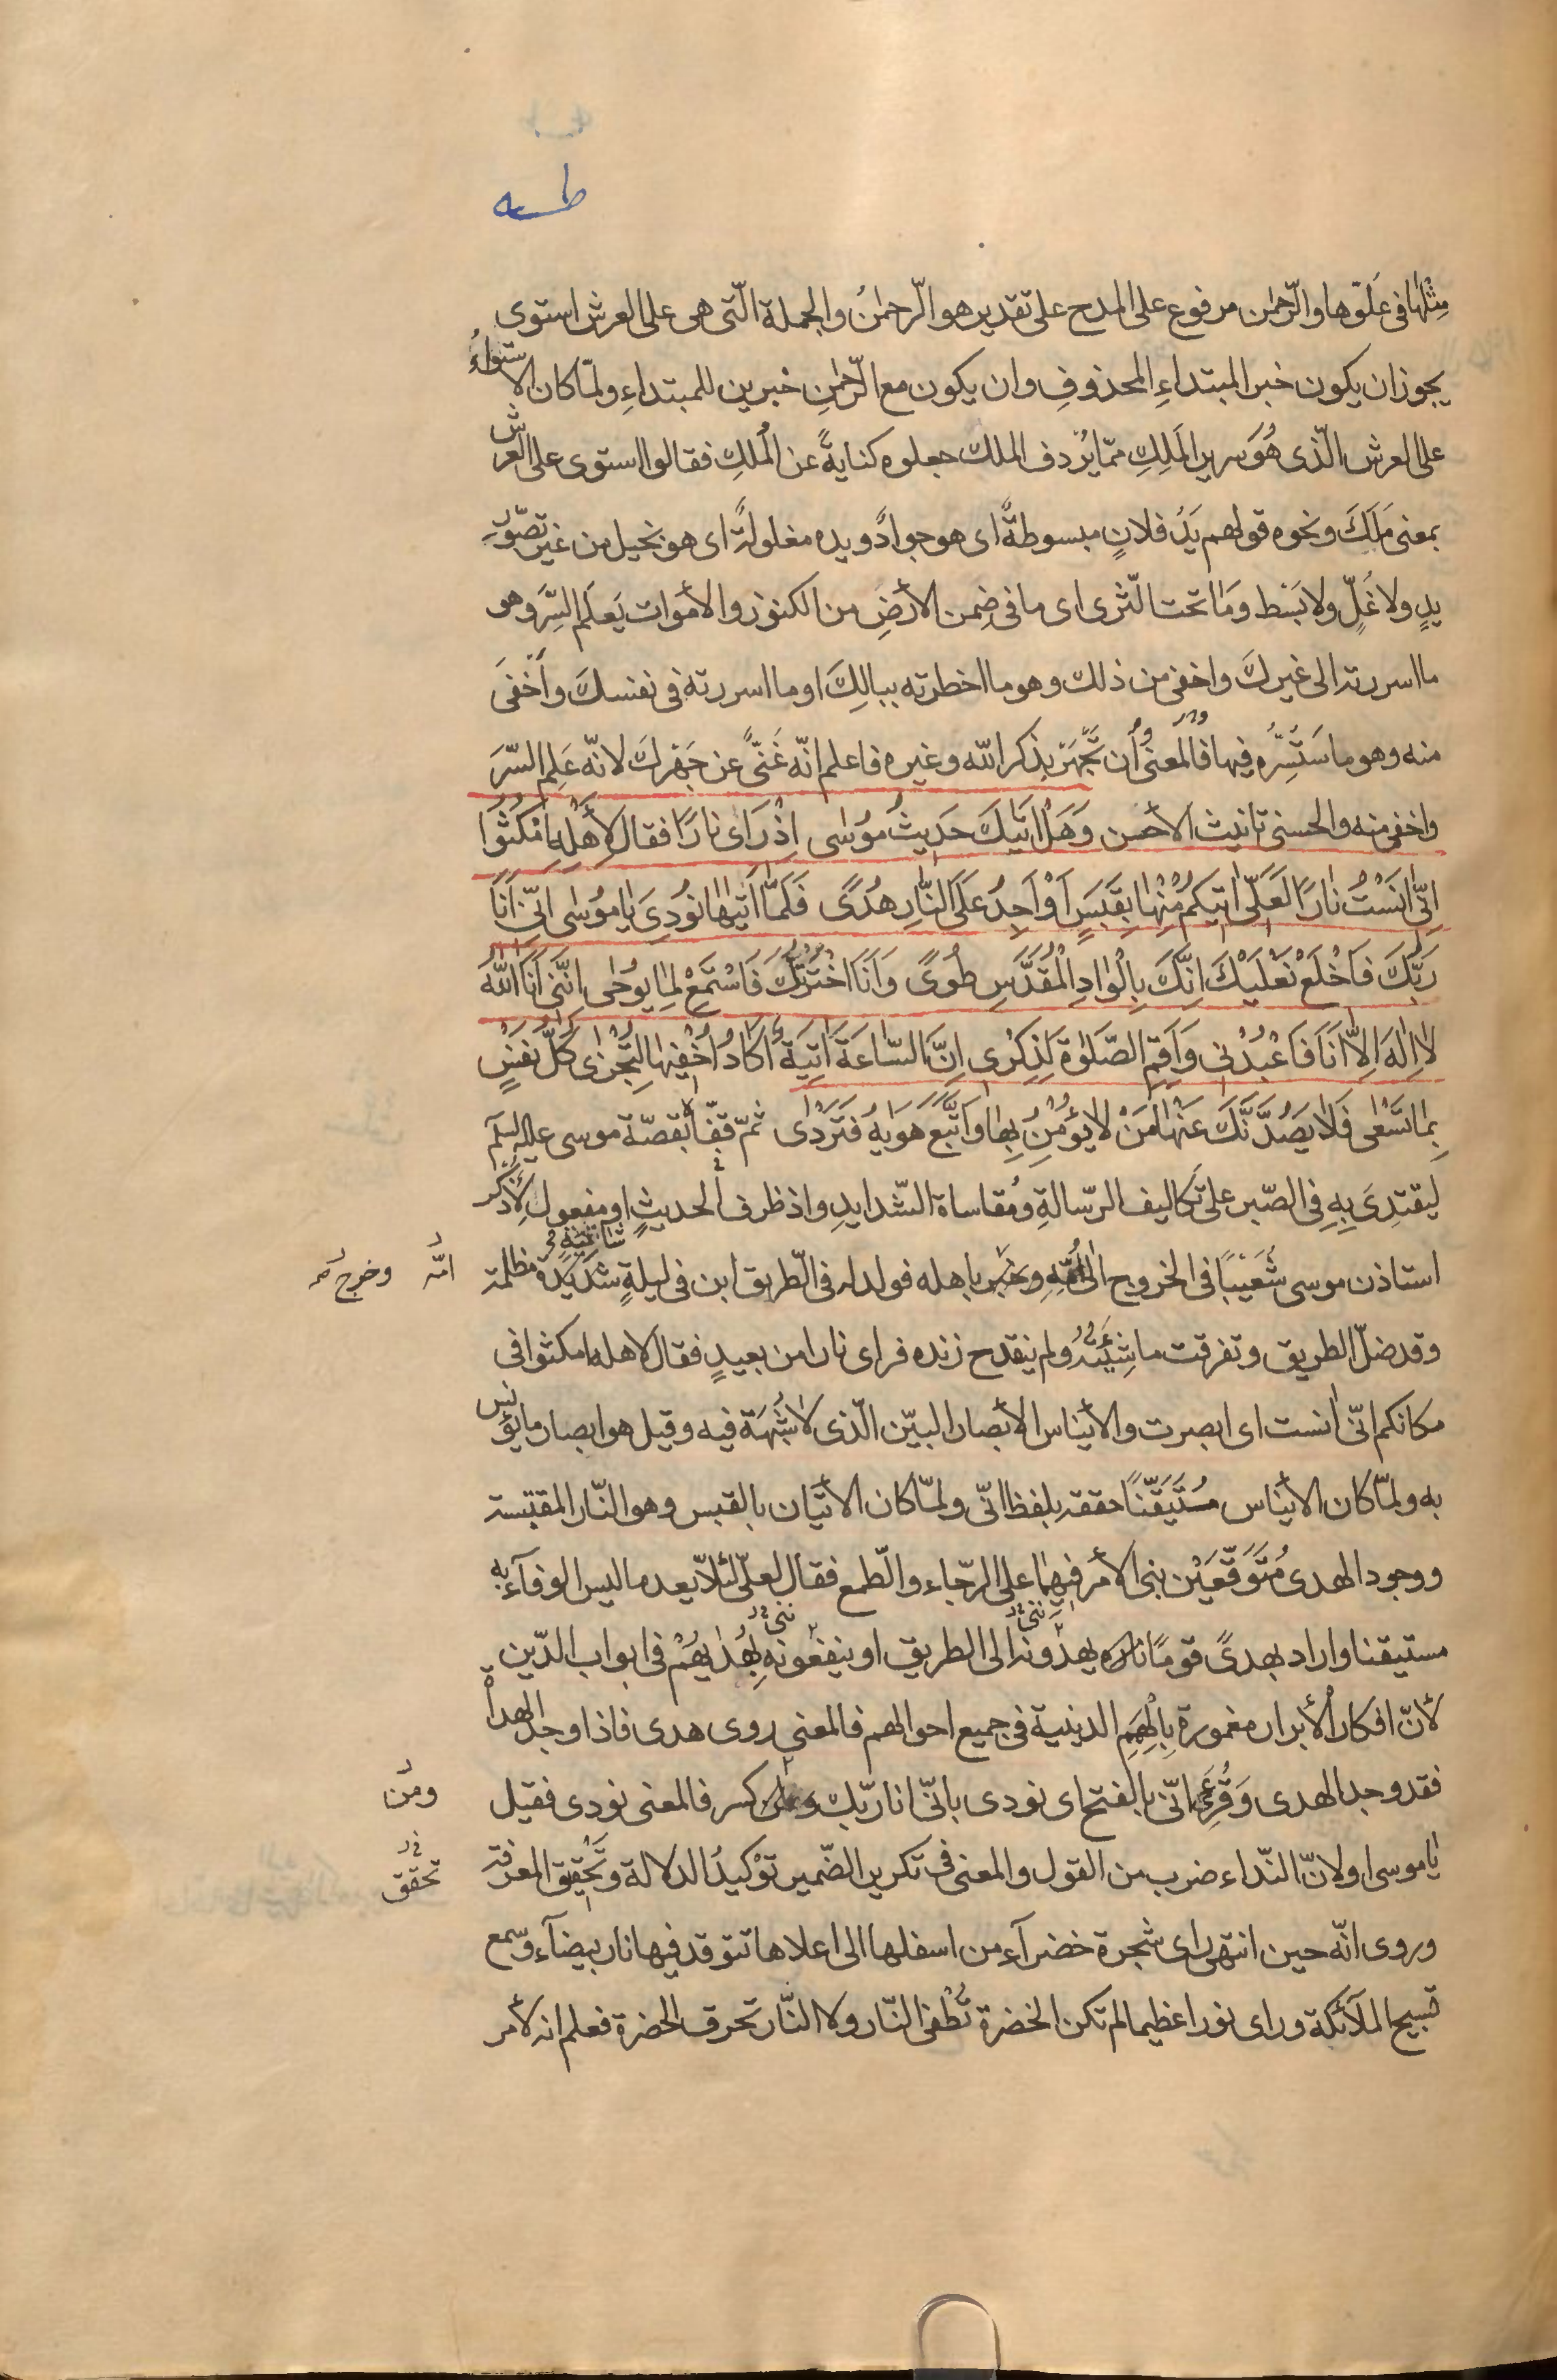 طه
مثلها فى علوّها والرّحمن مرفوع على المدح على تقدير هو الرّحمنُ والجملة الّتى هى على العرش استوى
يجوز ان يكون خبر المبتداءِ المحذوفِ وان يكون مع الرّحمنِ خبرين للمبتداءِ ولمّا كان الاستواءُ
على العرش الّذى هُوَ سرير المَلِكِ ممّا يُردف الملك جعلوه كنايةً عن المُلكِ فقالوا استوى على العرش
بمعنى مَلَكَ ونحوه قولهم يَدُ فلانٍ مبسوطةٌ اى هو جوادٌ ويده مغلولةٌ اى هو بخيل من غير تصوّرِ
يدٍ ولا غُلٍّ ولا بَسْط وَمَا تحت الثّرى اى ما فى ضِمن الأرضِ من الكنوز والأموات يَعلَم السِّرَ وهو
ما اسررته الى غيركَ واخفى من ذلك وهو ما اخطرته ببالِكَ او ما اسررته فى نفسكَ واَخفىَ
منه وهو ما سَتَسِرُّه فيها فالمعنى وان تَجْهَر بذكر الله وغيره فاعلم انّه غَنىٌّ عن جَهْرِكَ لانّه عَلِم السّرَ
واخفى منه والحسنى تانيث الأحسن وَهَلْ اَتيكَ حَديثُ مُوسٰى اِذْ رَاٰى نارًا فقال لِأَهْلِهِ امْكُثُوا
اِنّى اٰنَسْتُ نٰارًا لَعَلّى اٰتيكُمْ مِنْهٰا بِقَبَسٍ اَوْ اَجِدُ عَلَى النّٰارِ هُدًى فَلَمّٰا اَتٰيهٰا نُودِىَ يٰا مُوسٰى اِنّى اَنَا
رَبُّكَ فَاخْلَعْ نَعْلَيْكَ اِنَّكَ بِالْوٰادِ الْمُقَدَّسِ طُوًى وَاَنَا اخْتَرْتُكَ فَاسْتَمِعْ لِمٰا يُوحٰى اِنَّنى اَنَا اللّٰهُ
لٰا اِلٰهَ اِلّٰا اَنَا فَاعْبُدْنى وَاَقِمِ الصَّلٰوةَ لِذِكْرى اِنَّ السّٰاعَةَ اٰتِيَةٌ اَكٰادُ اُخْفيهٰا لِتُجْزٰى كُلُّ نَفْسٍ
بِمٰا تَسْعٰى فَلٰا يَصُدَّنَّكَ عَنْهٰا مَنْ لٰا يُؤْمِنُ بِهٰا وَاتَّبَعَ هَوٰيهُ فَتَرْدٰى ثمّ قفّٰا بقصّة موسى عليه السلم
ليقتدِىَ بِهِ فِى الصّبر على تكاليف الرّسالةِ ومُقاساة الشّدايدِ واذ ظرف الحديثِ او مفعول لأذكر
استاذن موسى شُعَيْبًا فى الخروج الى اُمِّهِ وخرج باهله فولد له فى الطّريق ابن فى ليلةٍ شاتيةٍ مظلمة
امّه
وخرج
وقد ضلّ الطريق وتفرقت ماشِيَتُهُ ولم ينقدح زنده فراى نارا من بعيدٍ فقال لاهله امكثوا فى
مكانكم انّى انست اى ابصرت والأيناس الأبصار البيّن الّذى لا شُبْهَةَ فيه وقيل هو ابصار ما يؤنس
به ولمّا كان الأيناس مُتَيَقَّنًا حققه بلفظ انّى ولمّا كان الأتيان بالقبس وهو النّار المقتبسة
ووجود الهدى مُتَوَقَّعَيْن بنى الأمر فيهما على الرجّاء والطّمع فقال لعلّى لئلّا يعد ما ليس الوفآء به
مستيقنا واراد بهدىً قومًا يهدونه الى الطريق او ينفعونه بِهُدٰيهُمْ فى ابواب الدّين
لأنّ افكار الأبرار مغمورة بِالْهِمَمِ الدينية فى جميع احوالهم فالمعنى روى هدى فاذا وجد الهداة
فقد وجد الهدى وَقُرِئَ انّى بالفتح اى نودى بانّى انا ربّك ومن كسر فالمعنى نودى فقيل
ومَن
يٰا موسى اولانّ النّداء ضرب من القول والمعنى فى تكرير الضّمير توْكيدُ الدلالة وتَحْقيق المعرفة
تحقق
وروى انّه حين انتهى راى شجرة خضرآء من اسفلها الى اعلاها تتوقد فيها نار بيضآء وسمع
تسبيح الملآئكة وراى نورا عظيما لم تكن الخضرة تُطْفئ النّار ولا النّار تحرق الخضرة فعلم انه لأمر